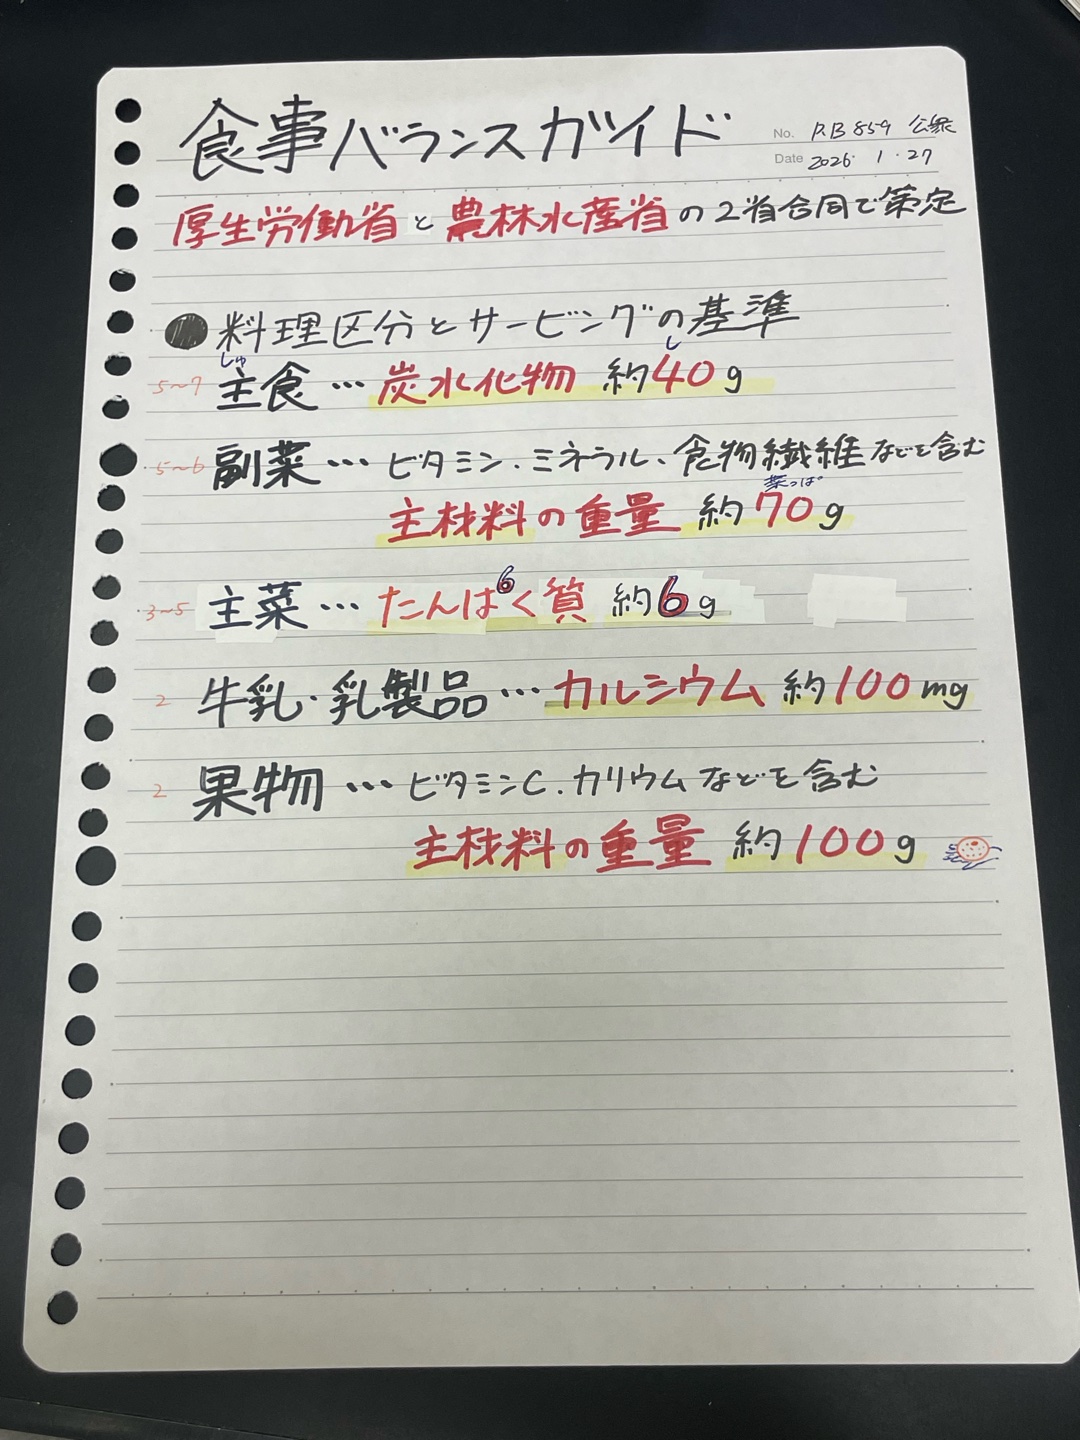 食事バランスガイド
No. R.B 859 公衆
Date 2026・1・27
厚生労働省と農林水産省の2省合同で策定
●料理区分とサービングの基準
しゅ し
5~7 主食…炭水化物 約40g
5~6 副菜…ビタミン、ミネラル、食物繊維などを含む
菜っぱ
主材料の重量 約70g
6
3~5 主菜…たんぱく質 約6g
2 牛乳・乳製品…カルシウム 約100mg
2 果物…ビタミンC、カリウムなどを含む
主材料の重量 約100g